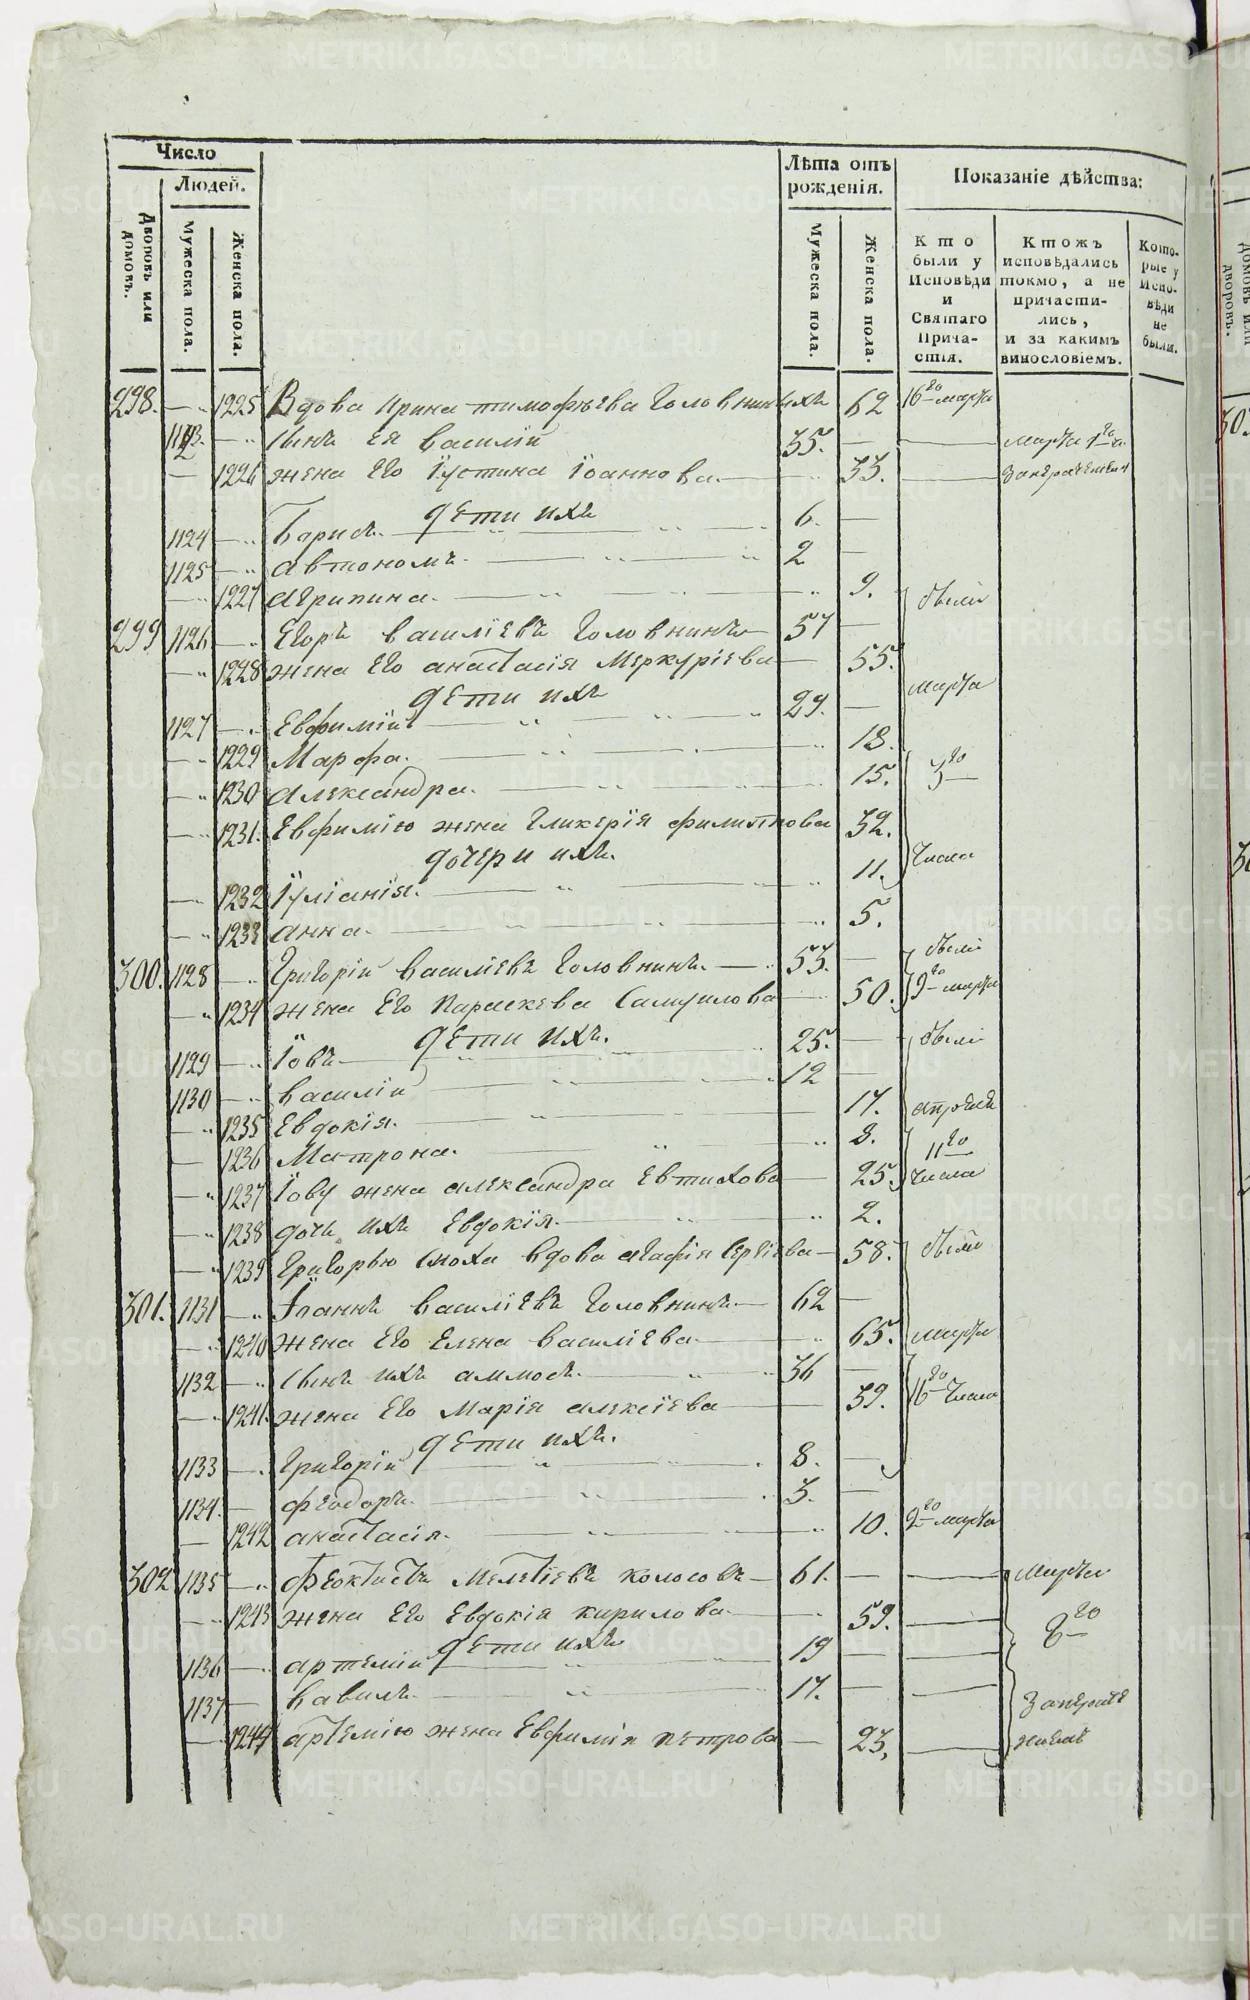 Число
Людей.
Дворовъ или домовъ.
Мужеска пола.
Женска пола.
Лѣта отъ рожденія.
Мужеска пола.
Женска пола.
Показаніе дѣйства:
Кто были у Исповѣди и Святаго Причастія.
Ктожъ исповѣдались токмо, а не причастились, и за какимъ винословіемъ.
Которые у Исповѣди не были.
298. 1225 Вдова Ирина тимофѣева Головниныхъ 62 16го марта
1123. сынъ ея василій 35. марта
1226 жена Его Iустина Iоаннова 33.
дѣти ихъ
1124 Борисъ 6.
1125 автономъ 2
1227 агрипина 9. были
299 1126 Егоръ василіевъ Головнинъ 57
1228 жена Его анастасія Меркуріева 55. марта
дѣти ихъ
1127 Евфимій 29.
1229 Марфа. 18.
1230 александра. 15. 3го
1231. Евфимію жена Гликерія филиппова 32.
дочери ихъ. числа
1232 Iуліанія. 11.
1233 анна. 5.
300. 1128 Григорій василіевъ Головнинъ. 53. были
1234 жена Его параскева Самуилова 50. 9го марта
дѣти ихъ.
1129 Iовъ 25. были
1130 василій 12
1235 Евдокія. 17. апрѣля
1236 Матрона. 8. 11го
1237 Iову жена александра Евтихова 25. числа
1238 дочь ихъ Евдокія. 2.
1239 Григорью сноха вдова агафія Сергіева 58. были
301. 1131 Iоаннъ василіевъ Головнинъ 62
1240 жена Его Елена василіева 65. марта
1132 сынъ ихъ аммосъ. 36 16го числа
1241. жена Его Марія алексіева 39.
дѣти ихъ.
1133 Григорій 8.
1134. феодоръ. 3.
1242 анастасія. 10. 9го марта
302 1135 Феоктистъ Мелетіевъ колосовъ 61. марта
1243 жена Его Евдокія кирилова 59. 8го
дѣти ихъ
1136 артемій 19
1137 вавилъ. 17.
1244 артемію жена Евфимія петрова 23,